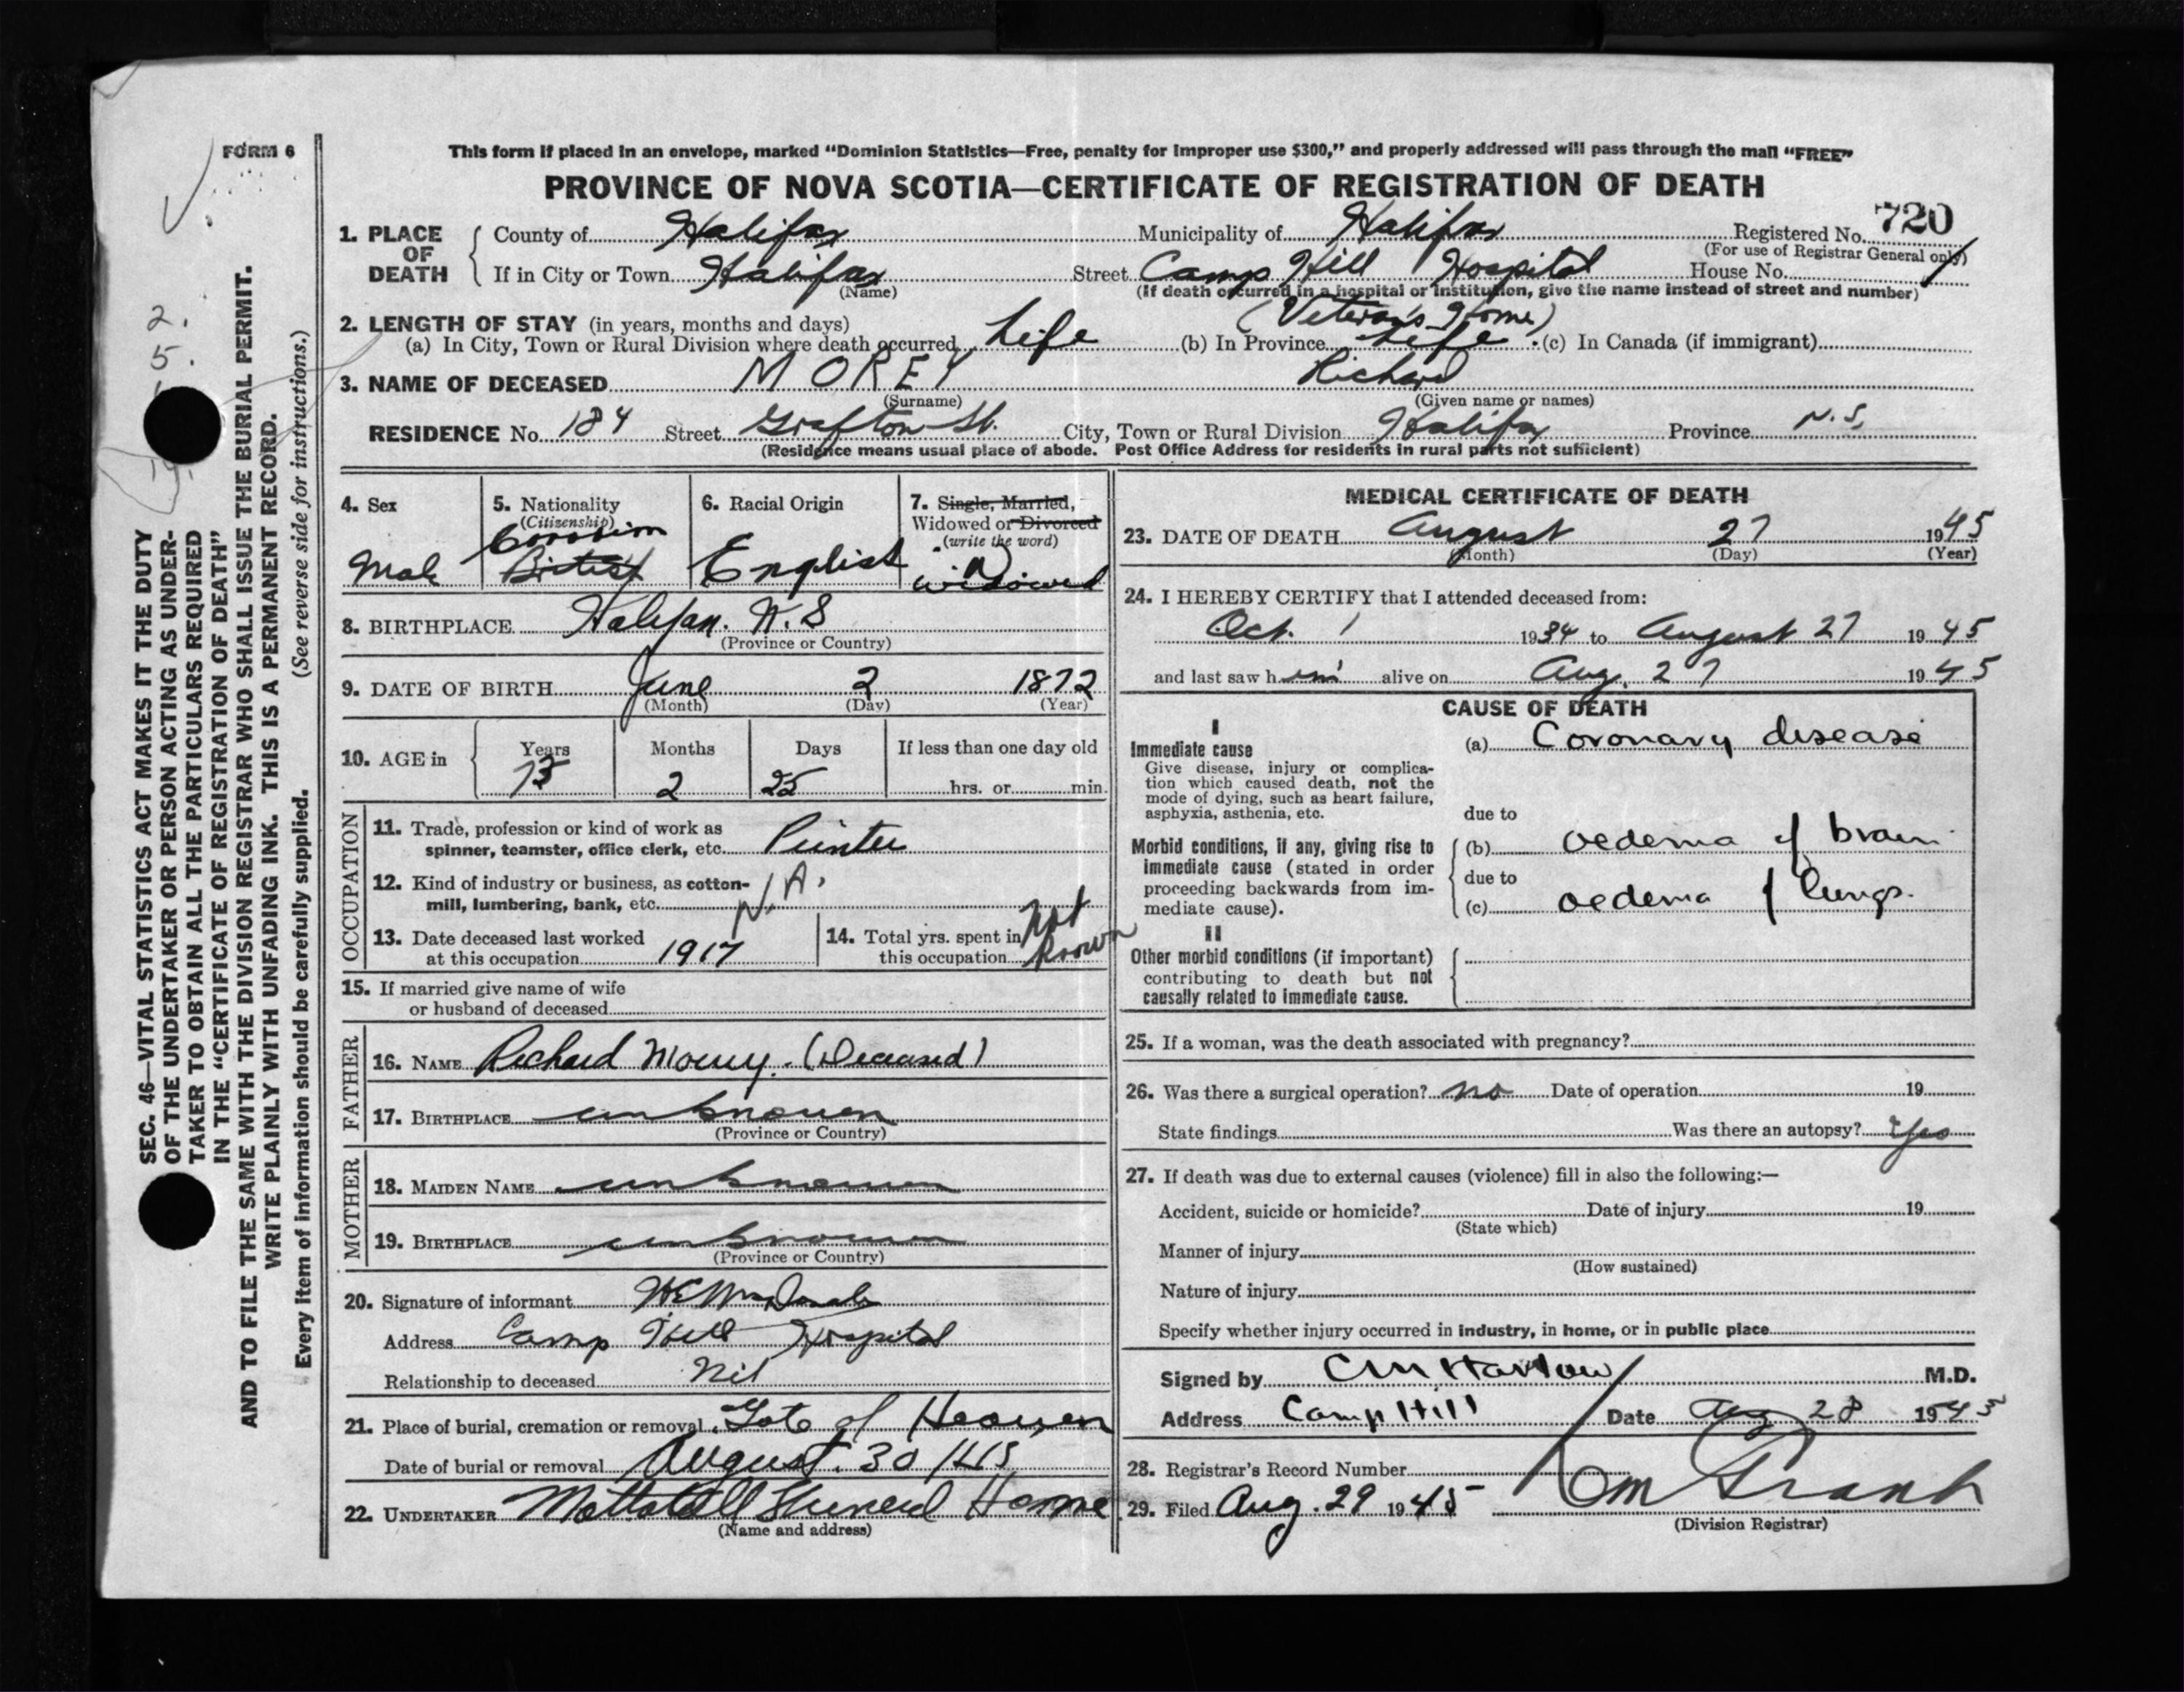 FORM 6
This form if placed in an envelope, marked “Dominion Statistics—Free, penalty for improper use $300,” and properly addressed will pass through the mail “FREE”
PROVINCE OF NOVA SCOTIA—CERTIFICATE OF REGISTRATION OF DEATH
720
1. PLACE OF DEATH
County of Halifax Municipality of Halifax Registered No.
(For use of Registrar General only)
If in City or Town Halifax Street Camp Hill Hospital House No.
(Name) (If death occurred in a hospital or institution, give the name instead of street and number)
(Veteran's Home)
2. LENGTH OF STAY (in years, months and days)
(a) In City, Town or Rural Division where death occurred Life (b) In Province Life (c) In Canada (if immigrant)
3. NAME OF DECEASED MOREY Richard
(Surname) (Given name or names)
RESIDENCE No. 184 Street Grafton St. City, Town or Rural Division Halifax Province N.S.
(Residence means usual place of abode. Post Office Address for residents in rural parts not sufficient)
4. Sex
Male
5. Nationality
(Citizenship)
Canadian
British
6. Racial Origin
English
7. Single, Married,
Widowed or Divorced
(write the word)
Widowed
8. BIRTHPLACE Halifax. N.S
(Province or Country)
9. DATE OF BIRTH June 2 1872
(Month) (Day) (Year)
10. AGE in
Years Months Days If less than one day old
73 2 25 hrs. or min.
OCCUPATION
11. Trade, profession or kind of work as
spinner, teamster, office clerk, etc. Printer
12. Kind of industry or business, as cotton-
mill, lumbering, bank, etc. N.A.
13. Date deceased last worked
at this occupation 1917
14. Total yrs. spent in
this occupation Not known
15. If married give name of wife
or husband of deceased
FATHER
16. NAME Richard Morey. (Deceased)
17. BIRTHPLACE unknown
(Province or Country)
MOTHER
18. MAIDEN NAME unknown
19. BIRTHPLACE unknown
(Province or Country)
20. Signature of informant
Address Camp Hill Hospital
Relationship to deceased Nil
21. Place of burial, cremation or removal Gate of Heaven
Date of burial or removal August. 30
22. UNDERTAKER Mattatall Funeral Home
(Name and address)
MEDICAL CERTIFICATE OF DEATH
23. DATE OF DEATH August 27 1945
(Month) (Day) (Year)
24. I HEREBY CERTIFY that I attended deceased from:
Oct. 1 1934 to August 27 1945
and last saw him alive on Aug. 27 1945
CAUSE OF DEATH
I
Immediate cause (a) Coronary disease
Give disease, injury or complica-
tion which caused death, not the
mode of dying, such as heart failure,
asphyxia, asthenia, etc. due to
Morbid conditions, if any, giving rise to (b) oedema of brain
immediate cause (stated in order due to
proceeding backwards from im-
mediate cause). (c) oedema of lungs.
II
Other morbid conditions (if important)
contributing to death but not
causally related to immediate cause.
25. If a woman, was the death associated with pregnancy?
26. Was there a surgical operation? no Date of operation 19
State findings Was there an autopsy? Yes
27. If death was due to external causes (violence) fill in also the following:—
Accident, suicide or homicide? Date of injury 19
(State which)
Manner of injury
(How sustained)
Nature of injury
Specify whether injury occurred in industry, in home, or in public place
Signed by CM Harlow M.D.
Address Camp Hill Date Aug 28 1945
28. Registrar's Record Number
29. Filed Aug. 29 1945
(Division Registrar)
SEC. 46—VITAL STATISTICS ACT MAKES IT THE DUTY
OF THE UNDERTAKER OR PERSON ACTING AS UNDER-
TAKER TO OBTAIN ALL THE PARTICULARS REQUIRED
IN THE “CERTIFICATE OF REGISTRATION OF DEATH”
AND TO FILE THE SAME WITH THE DIVISION REGISTRAR WHO SHALL ISSUE THE BURIAL PERMIT.
WRITE PLAINLY WITH UNFADING INK. THIS IS A PERMANENT RECORD.
Every item of information should be carefully supplied. (See reverse side for instructions.)
2.
5.